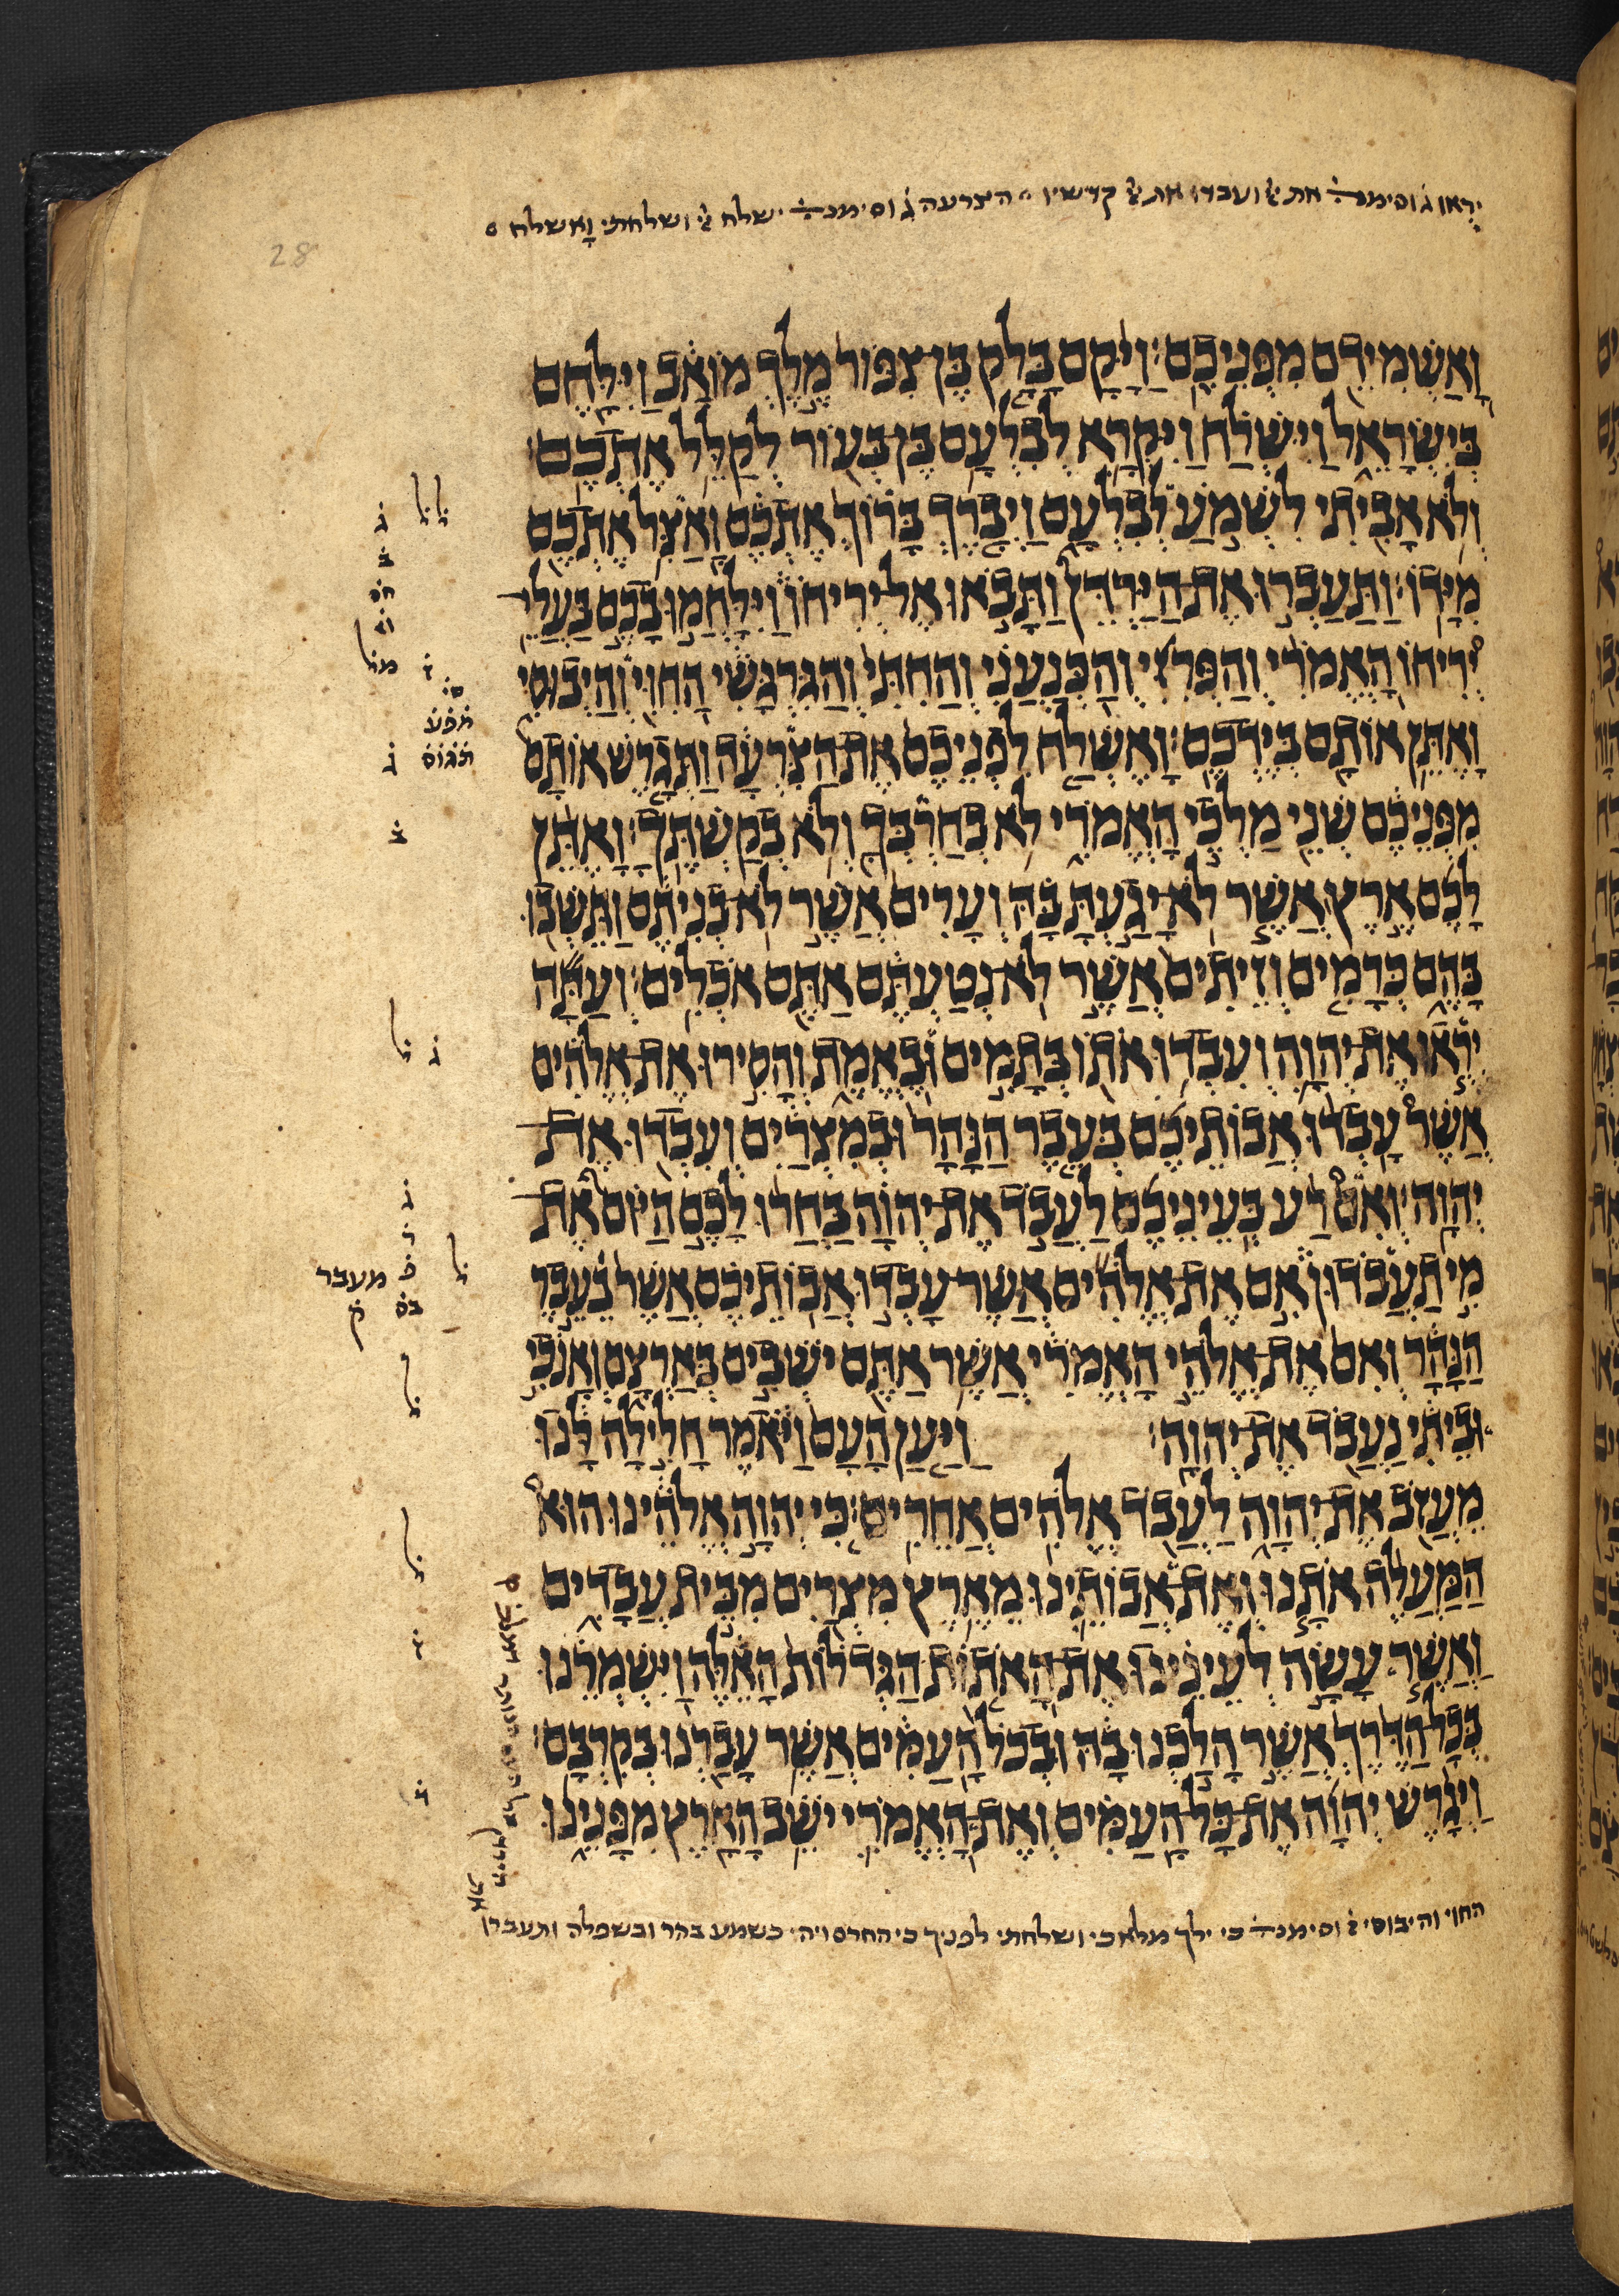 יראו ג וסימנ את ועבדו את קדשיו הצרעה ג וסימנ ישלח ושלחתי ואשלח
28
וָאַשְׁמִידֵם מִפְּנֵיכֶם׃ וַיָּקָם בָּלָק בֶּן צִפּוֹר מֶלֶךְ מוֹאָב וַיִּלָּחֶם
בְּיִשְׂרָאֵל וַיִּשְׁלַח וַיִּקְרָא לְבִלְעָם בֶּן בְּעוֹר לְקַלֵּל אֶתְכֶם׃
וְלֹא אָבִיתִי לִשְׁמֹעַ לְבִלְעָם וַיְבָרֶךְ בָּרוֹךְ אֶתְכֶם וָאַצִּל אֶתְכֶם
מִיָּדוֹ׃ וַתַּעַבְרוּ אֶת־הַיַּרְדֵּן וַתָּבֹאוּ אֶל־יְרִיחוֹ וַיִּלָּחֲמוּ בָכֶם בַּעֲלֵי־
יְרִיחוֹ הָאֱמֹרִי וְהַפְּרִזִּי וְהַכְּנַעֲנִי וְהַחִתִּי וְהַגִּרְגָּשִׁי הַחִוִּי וְהַיְבוּסִי
וָאֶתֵּן אוֹתָם בְּיֶדְכֶם׃ וָאֶשְׁלַח לִפְנֵיכֶם אֶת־הַצִּרְעָה וַתְּגָרֶשׁ אוֹתָם
מִפְּנֵיכֶם שְׁנֵי מַלְכֵי הָאֱמֹרִי לֹא בְחַרְבְּךָ וְלֹא בְקַשְׁתֶּךָ׃ וָאֶתֵּן
לָכֶם אֶרֶץ אֲשֶׁר לֹא־יָגַעְתָּ בָּהּ וְעָרִים אֲשֶׁר לֹא־בְנִיתֶם וַתֵּשְׁבוּ
בָּהֶם כְּרָמִים וְזֵיתִים אֲשֶׁר לֹא־נְטַעְתֶּם אַתֶּם אֹכְלִים׃ וְעַתָּה
יְראוּ אֶת־יְהוָה וְעִבְדוּ אֹתוֹ בְּתָמִים וּבֶאֱמֶת וְהָסִירוּ אֶת־אֱלֹהִים
אֲשֶׁר עָבְדוּ אֲבוֹתֵיכֶם בְּעֵבֶר הַנָּהָר וּבְמִצְרַיִם וְעִבְדוּ אֶת־
יְהוָה׃ וְאִם רַע בְּעֵינֵיכֶם לַעֲבֹד אֶת־יְהוָה בַּחֲרוּ לָכֶם הַיּוֹם אֶת־
מִי תַעֲבֹדוּן אִם אֶת־אֱלֹהִים אֲשֶׁר־עָבְדוּ אֲבוֹתֵיכֶם אֲשֶׁר בְּעֵבֶר
הַנָּהָר וְאִם אֶת־אֱלֹהֵי הָאֱמֹרִי אֲשֶׁר אַתֶּם יֹשְׁבִים בְּאַרְצָם וְאָנֹכִי
וּבֵיתִי נַעֲבֹד אֶת־יְהוָה׃ וַיַּעַן הָעָם וַיֹּאמֶר חָלִילָה לָּנוּ
מֵעֲזֹב אֶת־יְהוָה לַעֲבֹד אֱלֹהִים אֲחֵרִים׃ כִּי יְהוָה אֱלֹהֵינוּ הוּא
הַמַּעֲלֶה אֹתָנוּ וְאֶת־אֲבוֹתֵינוּ מֵאֶרֶץ מִצְרַיִם מִבֵּית עֲבָדִים
וַאֲשֶׁר עָשָׂה לְעֵינֵינוּ אֶת־הָאֹתוֹת הַגְּדֹלוֹת הָאֵלֶּה וַיִּשְׁמְרֵנוּ
בְּכָל־הַדֶּרֶךְ אֲשֶׁר הָלַכְנוּ בָהּ וּבְכֹל הָעַמִּים אֲשֶׁר עָבַרְנוּ בְּקִרְבָּם׃
וַיְגָרֶשׁ יְהוָה אֶת־כָּל־הָעַמִּים וְאֶת־הָאֱמֹרִי יֹשֵׁב הָאָרֶץ מִפָּנֵינוּ
מעבר
החוי והיבוסי וסימנ כי ילך מלאכי ושלחתי לפניך כי החרם ויהי כשמע בהר ובשפלה ותעברו